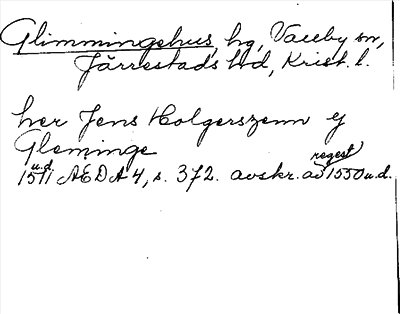 Glimmingehus, hg, Valleby sn,
Järrestads hd, Krist. l.
her Jens Holgerszenn y
Gleminge
1511 u.d. AEDA 4, s. 372. avskr. av regest 1550 u.d.